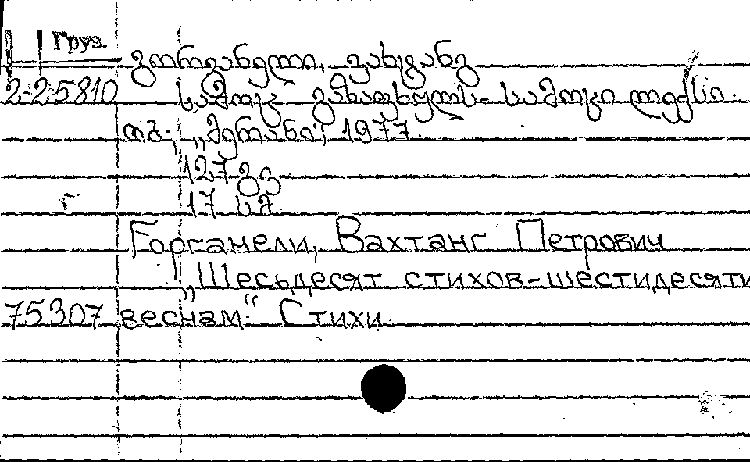 Груз.
გორგანელი, ვახტანგ
2-25810 სამოც გაზაფხულს - სამოცი ლექსი.
თბ., „მერანი", 1977.
127 გვ
17 სმ
Горганели, Вахтанг Петрович
„Шесьдесят стихов-шестидесяти
75307 веснам“ Стихи.